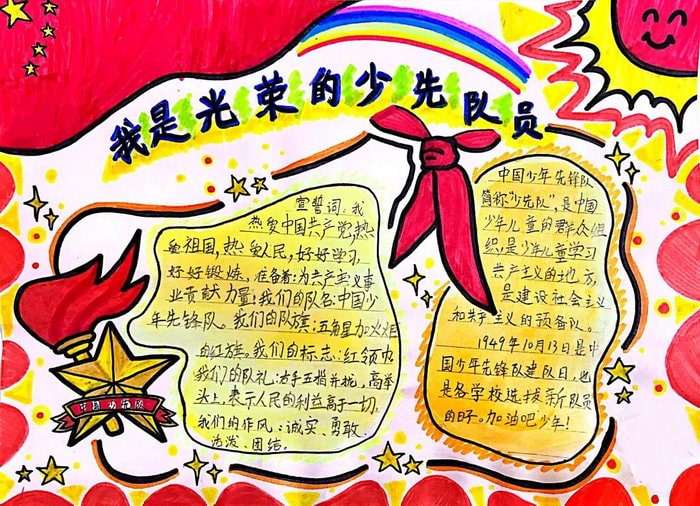 我是光荣的少先队员
宣誓词:我
热爱中国共产党,热
爱祖国,热爱人民,好好学习,
好好锻炼,准备着:为共产主义事
业贡献力量!我们的队名:中国少
年先锋队。我们的队旗:五角星加火炬
的红旗。我们的标志:红领巾
我们的队礼:右手五指并拢,高举
头上,表示人民的利益高于一切。
我们的作风:诚实、勇敢、
活泼、团结。
中国少年先锋队
简称"少先队",是中国
少年儿童的群众组
织,是少年儿童学习
共产主义的地方,
是建设社会主义
和共产主义的预备队。
1949年10月13日是中
国少年先锋队建队日,也
是各学校选拔新队员
的日子。加油吧少年!